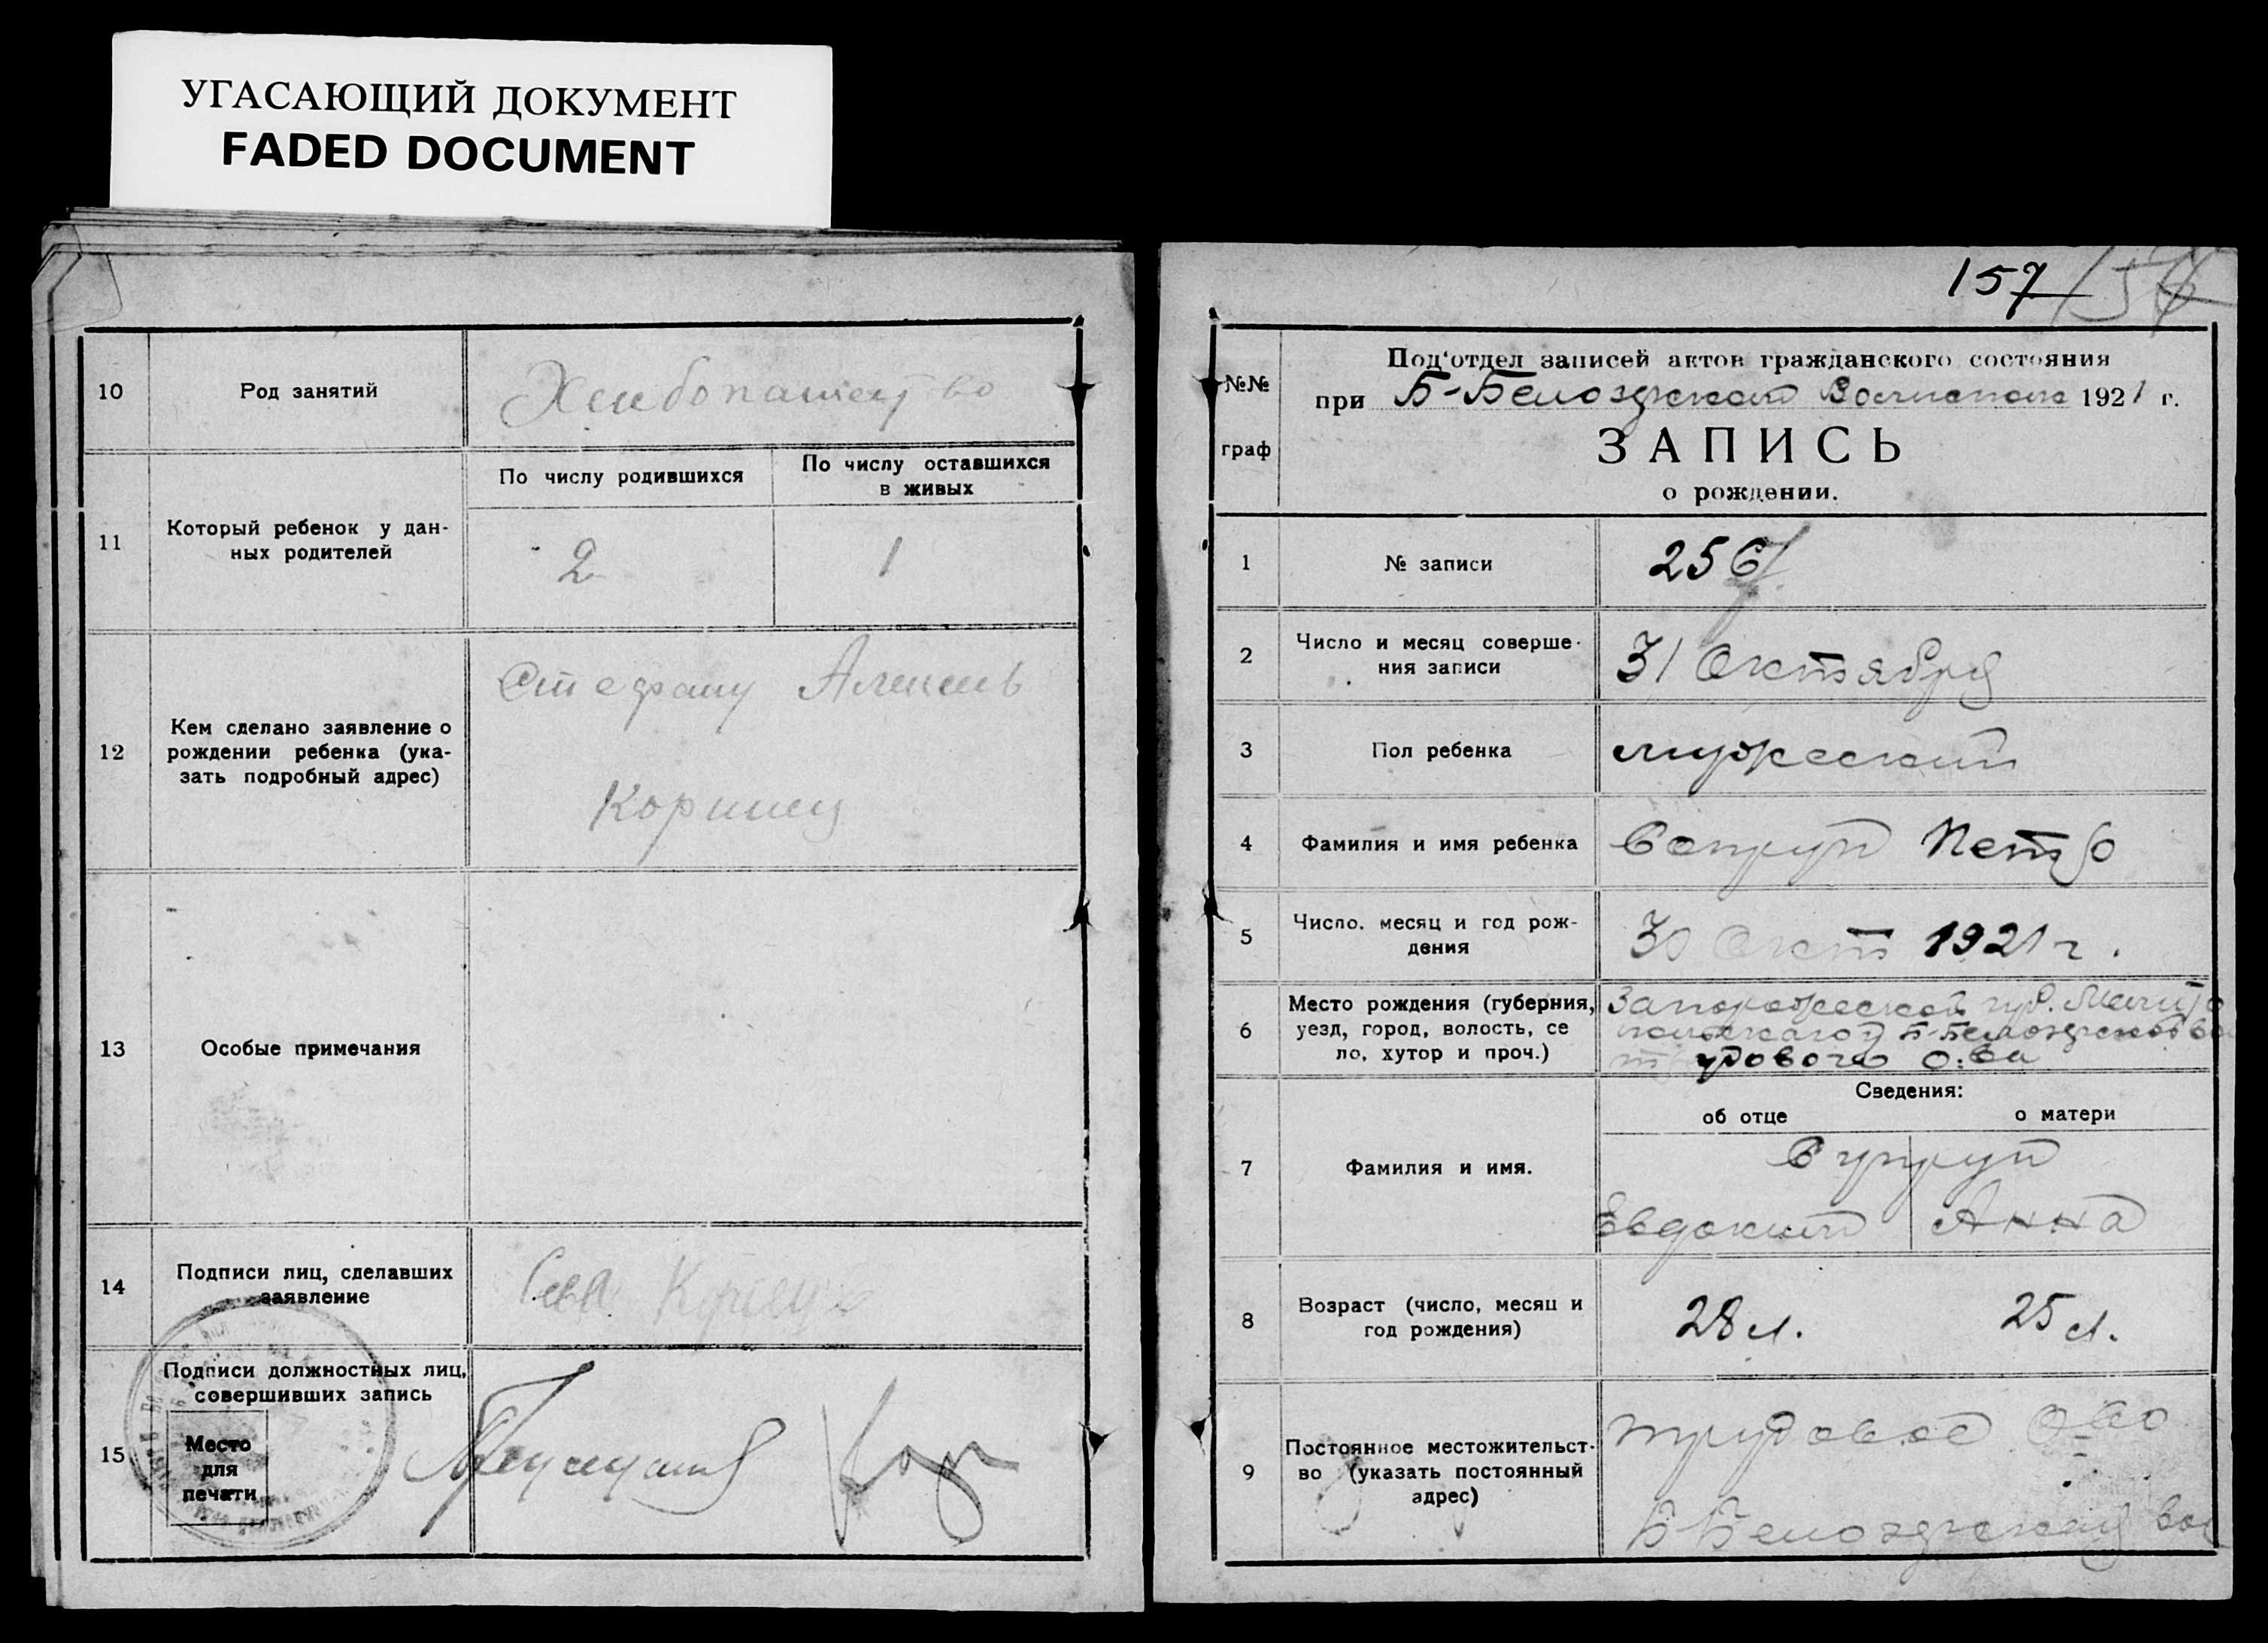 УГАСАЮЩИЙ ДОКУМЕНТ
FADED DOCUMENT
10
Род занятий
Хлебопашество
11
Который ребенок у дан-
ных родителей
По числу родившихся
2
По числу оставшихся
в живых
1
12
Кем сделано заявление о
рождении ребенка (ука-
зать подробный адрес)
13
Особые примечания
14
Подписи лиц, сделавших
заявление
15
Подписи должностных лиц,
совершивших запись
Место
для
печати
157
№№
граф
Под'отдел записей актов гражданского состояния
при Б-Белозерском 1921 г.
ЗАПИСЬ
о рождении.
1
№ записи
256
2
Число и месяц соверше-
ния записи
31 Октября
3
Пол ребенка
мужеский
4
Фамилия и имя ребенка
Супрун Петро
5
Число, месяц и год рож-
дения
30 Окт 1921 г.
6
Место рождения (губерния,
уезд, город, волость, се
ло, хутор и проч.)
Запорожской губ. Мелито
польского у Б-Белозерской во
трудового о-ва
Сведения:
об отце
о матери
7
Фамилия и имя.
Супрун
Евдоким
Анна
8
Возраст (число, месяц и
год рождения)
28 л.
25 л.
9
Постоянное местожительст-
во (указать постоянный
адрес)
трудовое О-во
Б-Белозерской вол